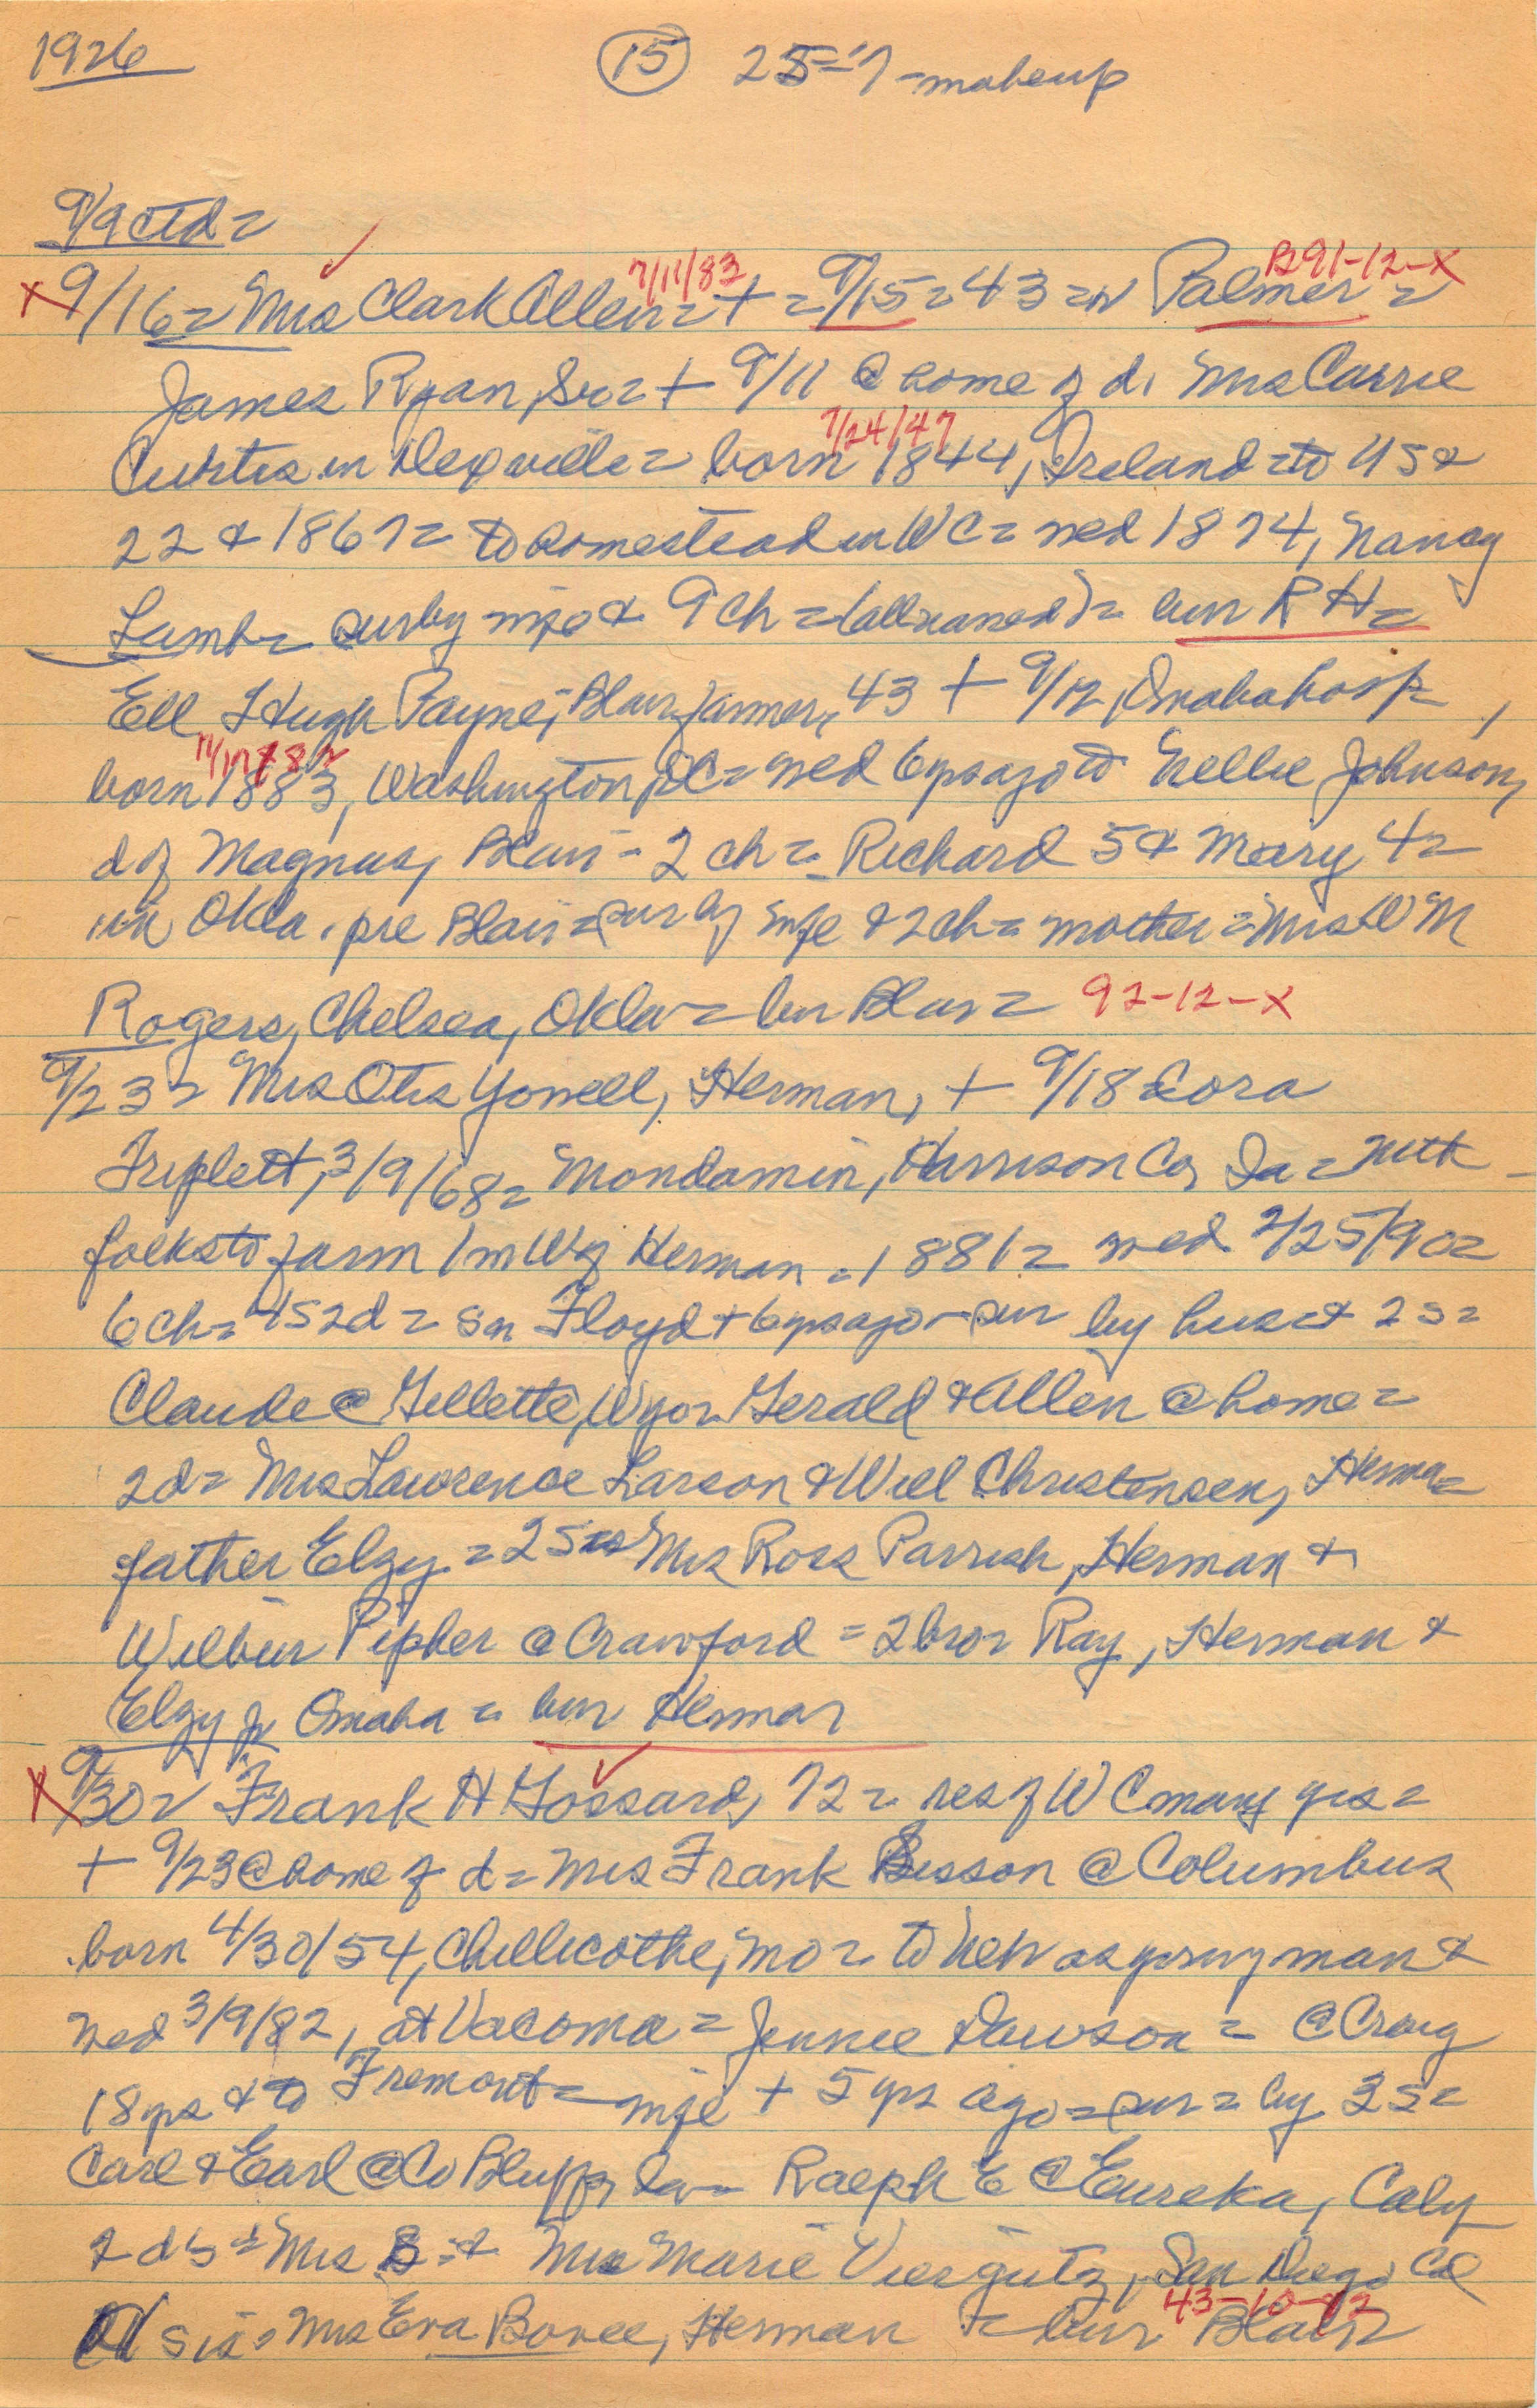 1926 (15) 25='7-makeup
9/9 ctd=
7/11/83 B91-12-X
x 9/16= Mrs Clark Allen=+=9/15=43=n Palmer=
James Ryan, Sr=+ 9/11 @ home of d, Mrs Carrie
7/24/47
Curtis in =born 1844, Ireland=to US@
22 & 1867= to homestead in WC= wed 1874, Nancy
Lamb= sur by wife & 9 ch=(all named)= bur RH=
Ell Hugh Payne, Blair farmer, 43 + 9/12, Omaha hosp=,
11/17/82
born 1883, Washington, DC= wed 6 yrs ago to Nellie Johnson,
d of Magnus, Blair- 2 ch= Richard 5 & Mary 4=
in Okla. pre Blair=sur by wife & 2 ch= mother=Mrs W M
Rogers, Chelsea, Okla= bur Blair= 92-12-X
9/23= Mrs Otis Yowell, Herman, + 9/18 Cora
Triplett, 3/9/68= Mondamin, Harrison Co, Ia= with
folks to farm 1 m W of Herman =1881= wed 2/25/90=
6 ch= 4s 2d= sn Floyd + 6 yrs ago-sur by hus & 2s=
Claude @ Gillette, Wyo= Gerald & Allen @ home=
2d= Mrs Lawrence Larson & Will Christensen, Herma=
father Elzy=2 sis Mrs Ross Parrish, Herman &
Wilbur Pipher @ Crawford =2 bro= Ray, Herman &
Elzy Jr Omaha = bur Herman
x 9/30= Frank H Gossard, 72= res of WC many yrs=
+ 9/23 @ home of d= Mrs Frank Sisson @ Columbus
born 4/30/54, Chillicothe, Mo= to Neb as young man &
wed 3/9/82, at Vacoma= Jennie Dawson= @ Craig
18 yrs & to Fremont= wife + 5 yrs ago=sur= by 3s=
Carl & Earl @ Co Bluffs, Ia= Ralph E @ Eureka, Calif
2 ds= Mrs S=& Mrs Marie Viergutz, San Diego Cal
43-10-12
sis= Mrs Eva Bovee, Herman = bur Blair